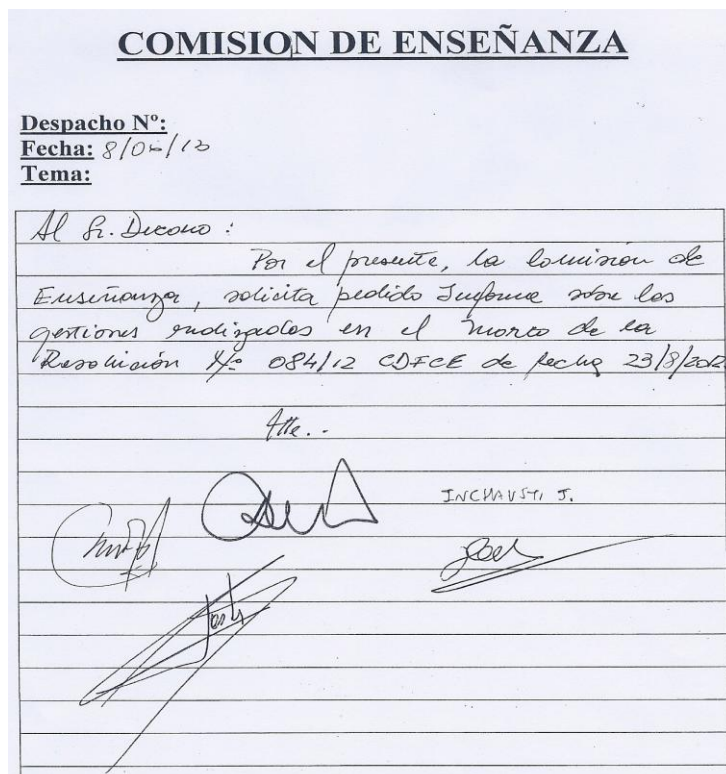 COMISION DE ENSEÑANZA
Despacho Nº:
Fecha: 8/06/13
Tema:
Al Sr. Decano :
Por el presente, la Comisión de
Enseñanza, solicita pedido Informe sobre las
gestiones realizadas en el marco de la
Resolución Nº 084/12 CDFCE de fecha 23/8/2012
Atte..
INCHAUSTI J.